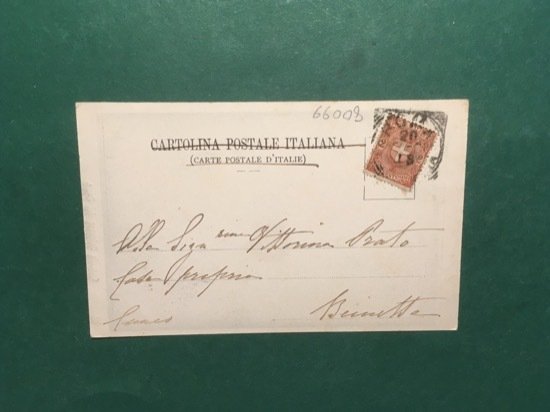 66003
CARTOLINA POSTALE ITALIANA
(CARTE POSTALE D'ITALIE)
Alla Sig.a Vittorina Prato
Casa propria
Beinette
Cuneo